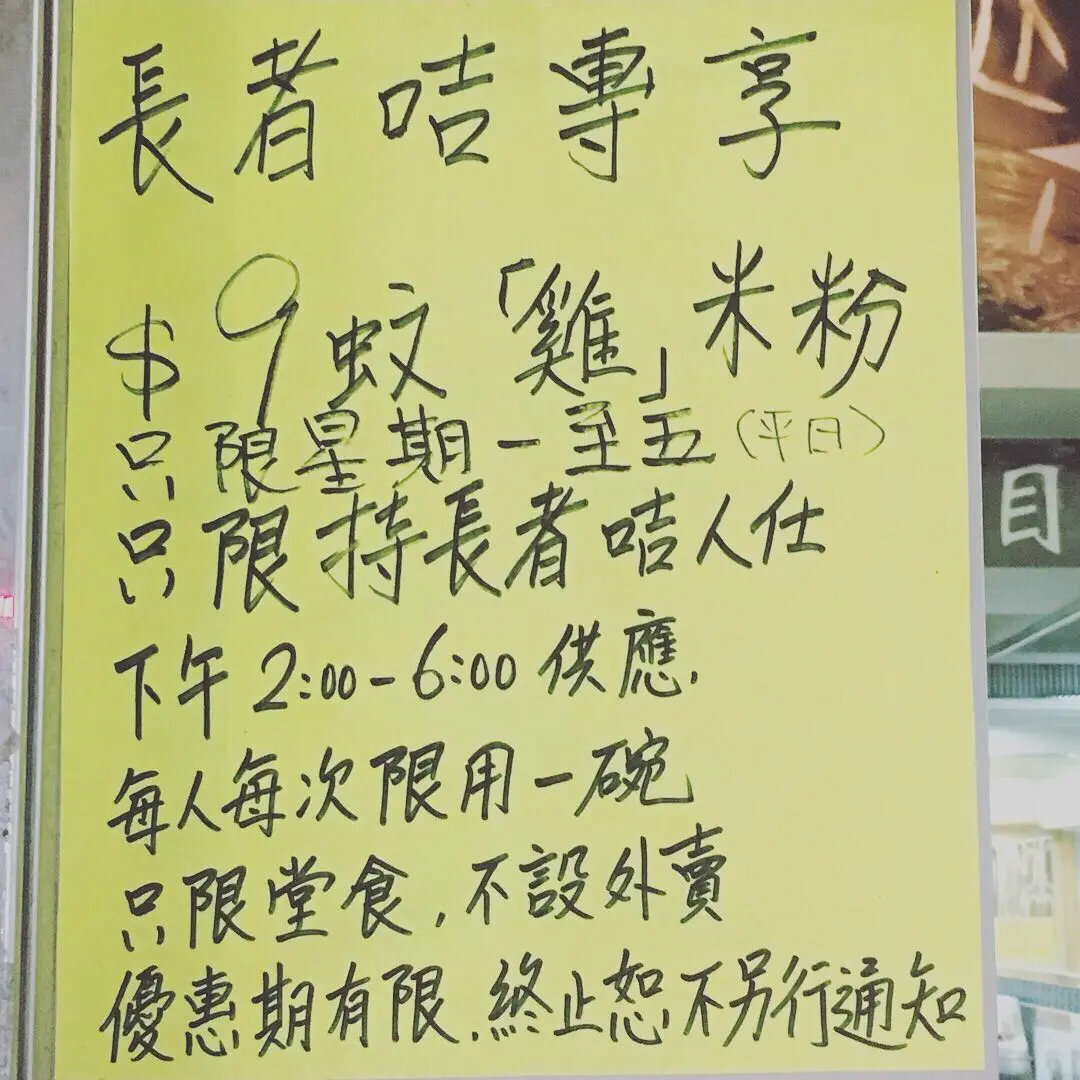 長者咭專享
$9蚊「雞」米粉
只限星期一至五(平日)
只限持長者咭人仕
下午2:00-6:00供應,
每人每次限用一碗
只限堂食,不設外賣
優惠期有限,終止恕不另行通知
目